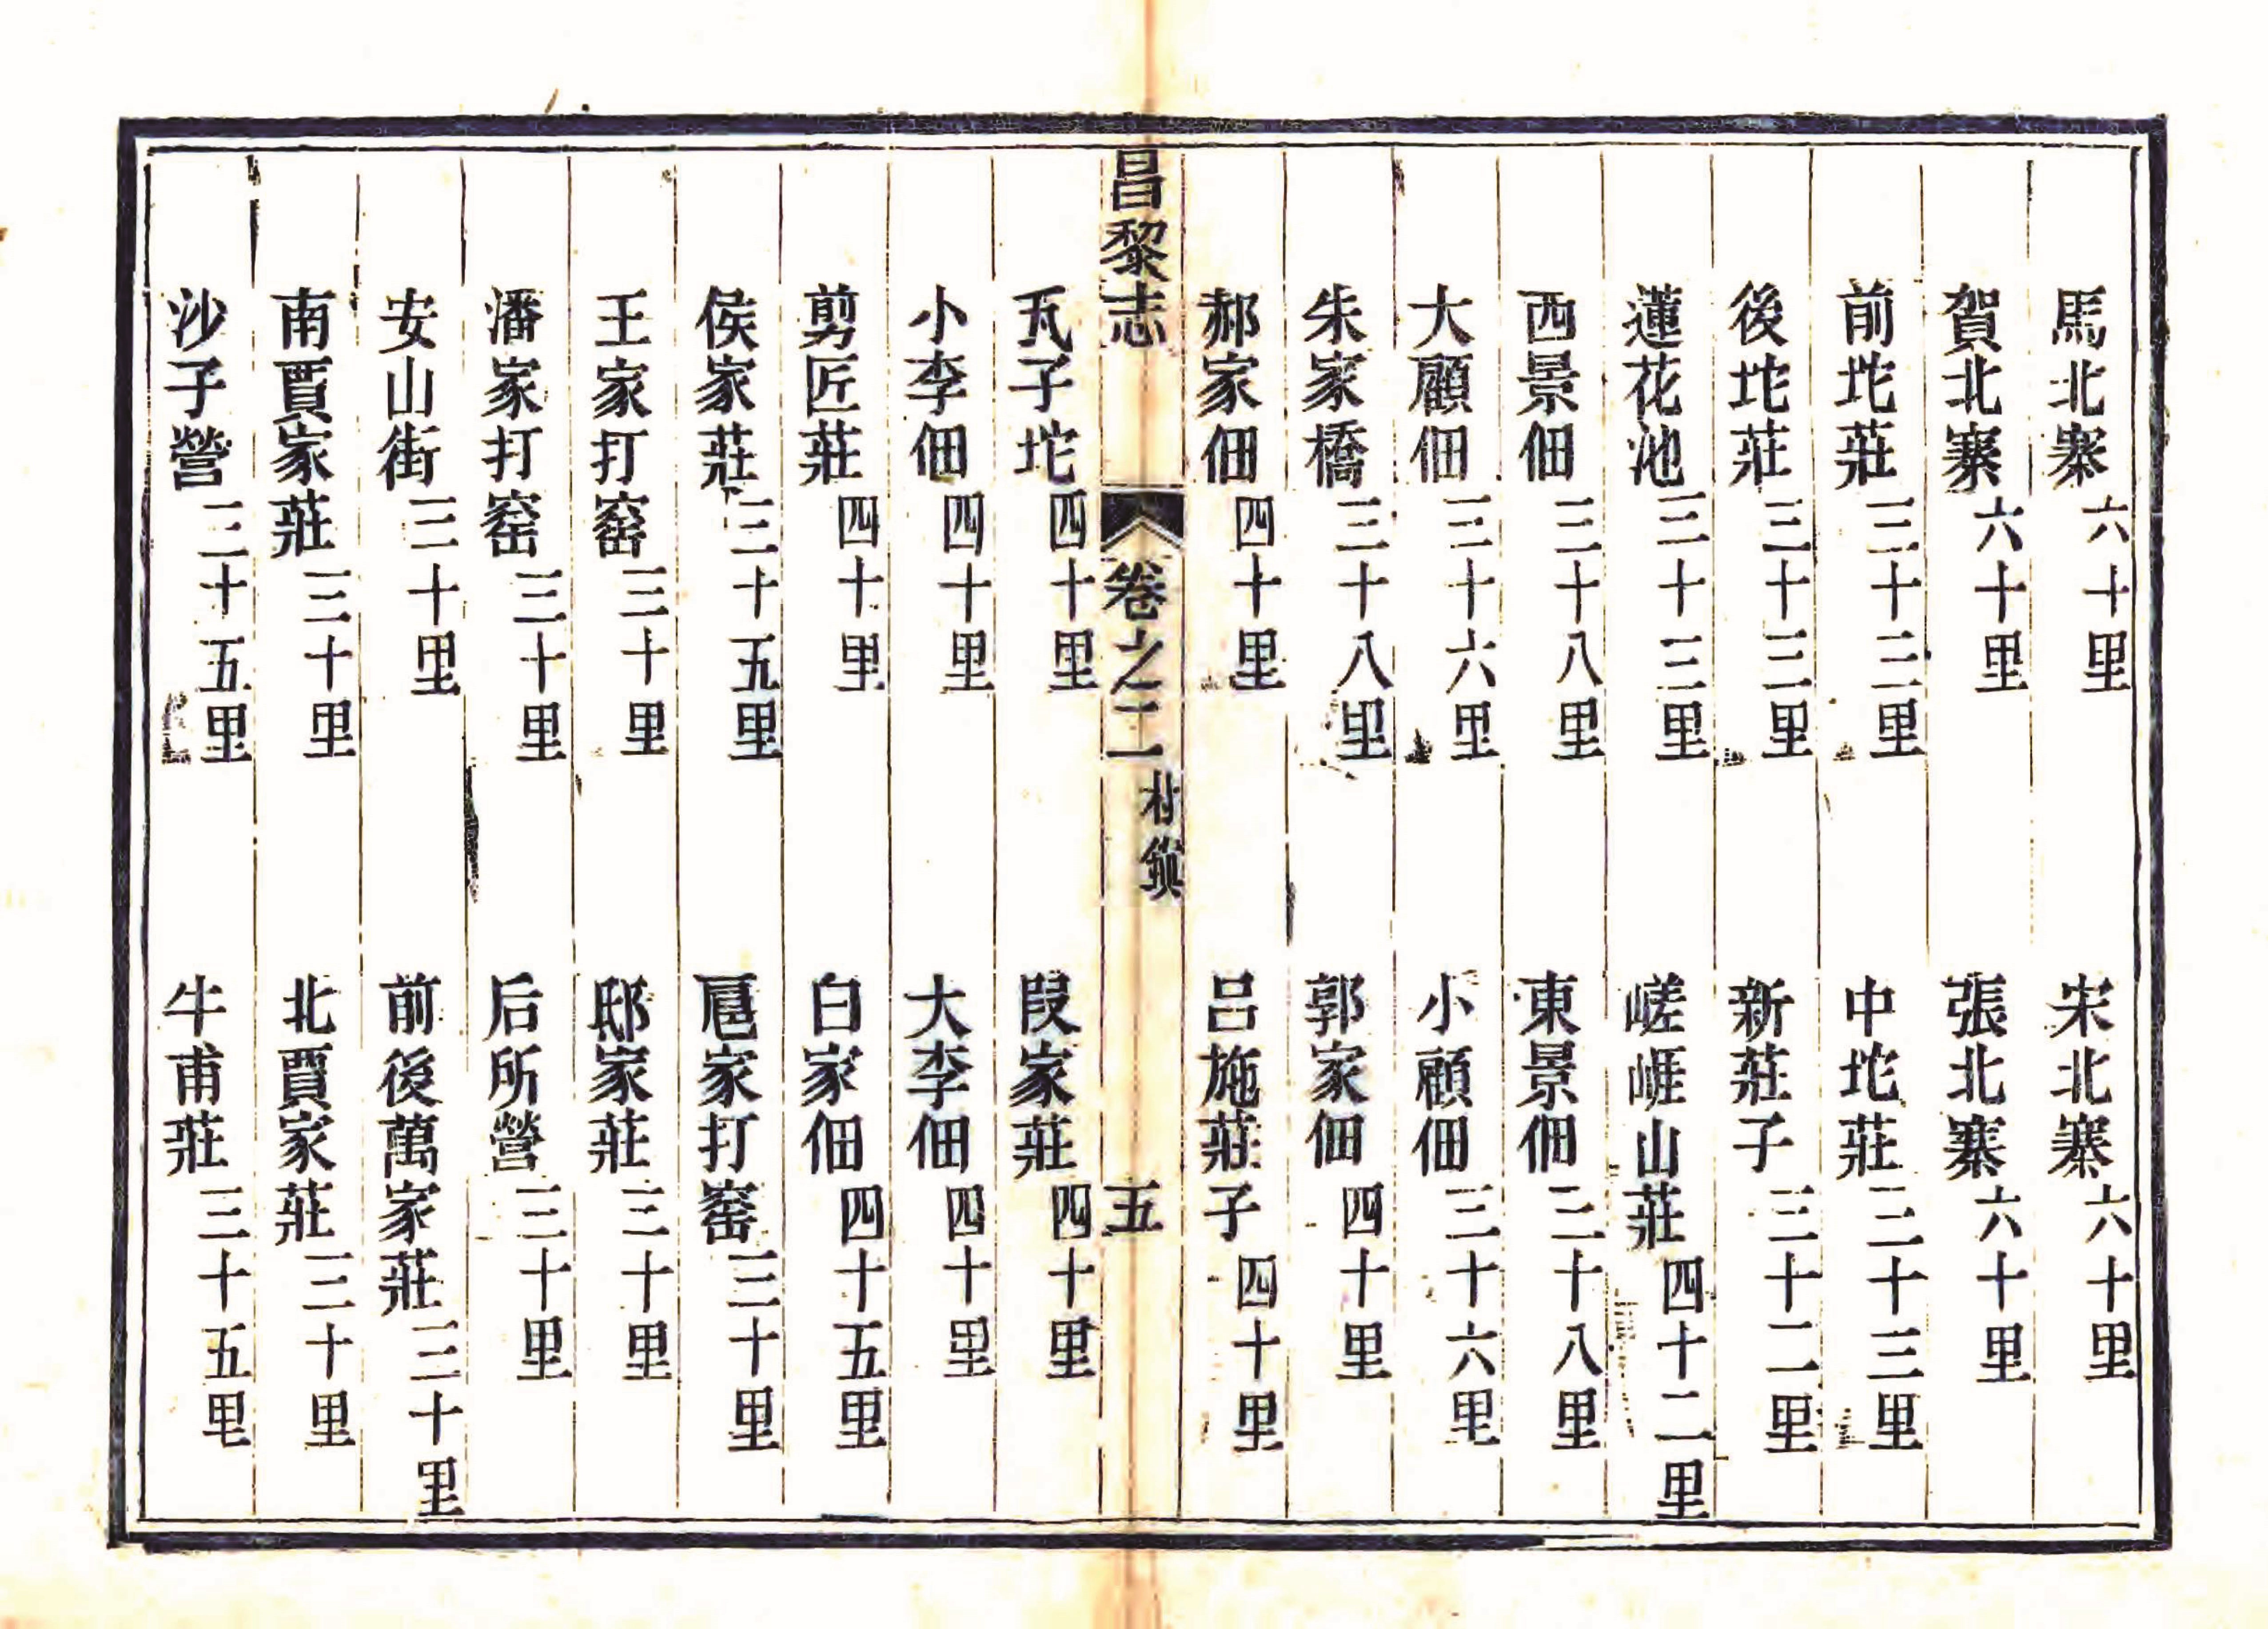 馬北寨六十里 宋北寨六十里
賀北寨六十里 張北寨六十里
前坨莊三十三里 中坨莊三十三里
後坨莊三十三里 新莊子三十二里
蓮花池三十三里 嵯崕山莊四十二里
西景佃三十八里 東景佃三十八里
大顧佃三十六里 小顧佃三十六里
朱家橋三十八里 郭家佃四十里
郝家佃四十里 吕施莊子四十里
昌黎志 卷之二 村鎮 五
瓦子坨四十里 段家莊四十里
小李佃四十里 大李佃四十里
剪匠莊四十里 白家佃四十五里
侯家莊三十五里 扈家打窑三十里
王家打窑三十里 邸家莊三十里
潘家打窑三十里 后所營三十里
安山街三十里 前後萬家莊三十里
南賈家莊三十里 北賈家莊三十里
沙子營三十五里 牛甫莊三十五里